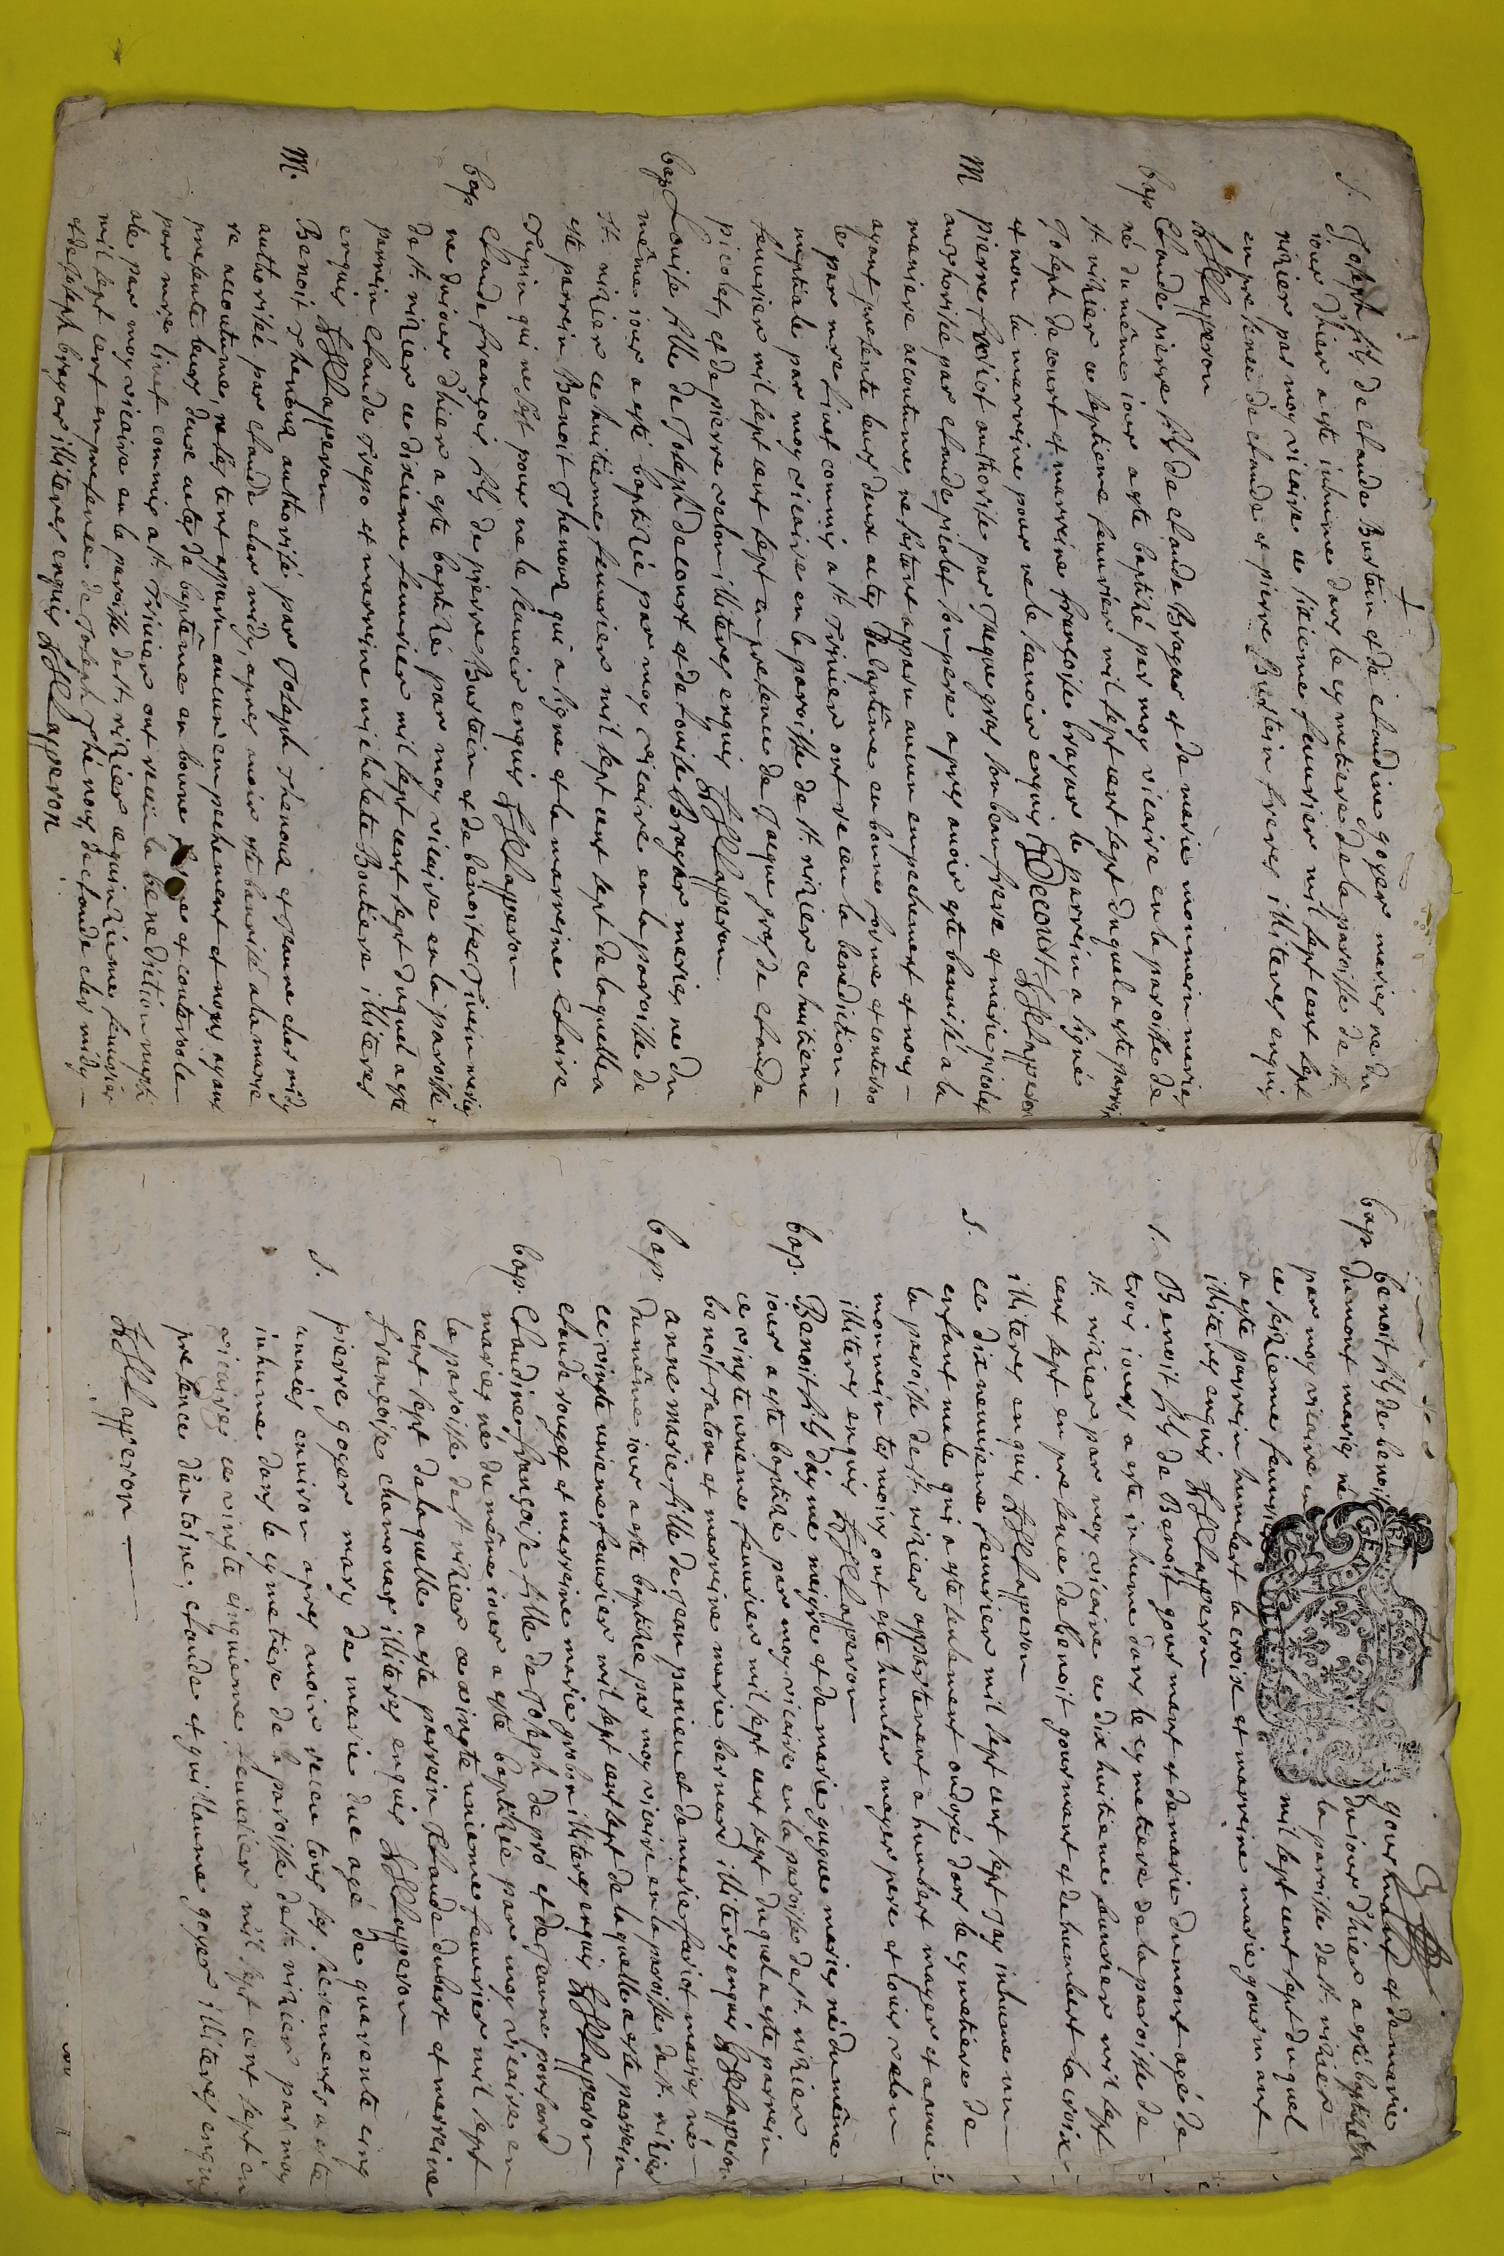 S. Joseph fils de claude Burtein et de claudine goyer maries ne du
iour d'hier a este inhume dans le cymetiere de la paroisse de st.
nizier par moy vicaire ce sixieme feuurier mil sept cent sept
en presence de claude et pierre Burtein freres illiteres enquis
Clapperon
bap Claude pierre fils de claude Bragar et de marie monnein maries
né du même iour a este baptisé par moy vicaire en la paroisse de
st. nizier ce septieme feuurier mil sept cent sept duquel a este parrein
Joseph decourt et marreine françoise bragar le parrein a signé
et non la marreine pour ne le scauoir enquis JDecourt Clapperon
M pierre authorisé par Jaque gras son beau frere et marie picolet
authorisée par claude picolet son pere apres auoir este bannisé a la
maniere accoutumé ne s'etant apparu aucun empechement et nous
ayant presenté leurs deux actes de baptême en bonne forme et controo
lé par mre linet commis a st. Triuier ont receu la benediction
nuptiale par moy vicaire en la paroisse de st. nizier ce huitieme
feuurier mil sept cent sept en presence de Jaque gras de claude
picolet, et de pierre velon illiteres enquis Clapperon.
bap Louise fille de Joseph decourt et de louise Bragar maries ne du
même iour a esté baptisée par moy vicaire en la paroisse de
st. nizier ce huitieme feuurier mil sept cent sept de laquelle a
esté parrein Benoit Thenoux qui a signe et la marreine claire
Tupin qui ne set pour ne le scauoir enquis Clapperon
bap Claude françois fils de pierre Burtein et de benoite Tiuein maries
ne du iour d'hier a este baptizé par moy vicaire en la paroisse
de st. nizier ce dixieme feuurier mil sept cent sept duquel a este
parrein claude et marreine michelete Boutiere illiteres
enquis Clapperon
M. Benoit Thenoux authorisé par Joseph Thenoux et Jeanne cher midy
authorisée par claude cher midy, apres auoir este bannisé a la manie
re accoutumé, ne s'estant apparu aucun empechement et nous ayant
presenté leurs deux actes de baptême en bonne forme et controole
par mre linet commis a st. Triuier ont receu la benediction nupti
ale par moy vicaire en la paroisse de st. nizier ce quinzieme feuurier
mil sept cent sept en presence de Joseph Thenoux, de claude cher midy
et de Joseph bragar illiteres enquis Clapperon
bap. benoit fils de benoit gourmant et de marie
dumont maries né du iour d'hier a esté baptisé
par moy vicaire en la paroisse de st. nizier
ce sixieme feuurier mil sept cent sept duquel
a este parrein humbert lacroix et marreine marie gourmant
illiteres enquis Clapperon
S. Benoit fils de Benoit gourmant et de marie dumont agé de
trois iours a este inhumé dans le cymetiere de la paroisse de
st. nizier par moy vicaire ce dix huitieme feuurier mil sept
cent sept en presence de benoit gourmant et de humbert lacroix
illiteres enquis Clapperon
S. ce dix neuuieme feuurier mil sept cent sept Jay inhumé un
enfant male qui a este seulement ondoyé dans le cymetiere de
la paroisse de st. nizier appartenant a humbert mayer et a
monnein temoins ont este humbert mayer pere et louis velon
illiteres enquis Clapperon
bap. Benoit fils d'ayme meigre et de marie maries né du même
iour a este baptisé par moy vicaire en la paroisse de st. nizier
ce vingt unieme feuurier mil sept cent sept duquel a este parrein
benoit raton et marreine marie bernard illiteres enquis Clapperon
bap. anne marie fille de Jean panieu et de marie fariot maries né
du même iour a este baptisée par moy vicaire en la paroisse de st. nizier
ce vingt unieme feuurier mil sept cent sept de laquelle a este parrein
claude rouget et marreine marie grobon illiteres enquis Clapperon
bap. Claudine françoise fille de Joseph de pré et de Jeanne ponsard
maries né du même iour a este baptisée par moy vicaire en
la paroisse de st. nizier ce vingt unieme feuurier mil sept
cent sept de laquelle a este parrein claude dubost et marreine
françoise chamouar illiteres enquis Clapperon
S. pierre goyer mary de marie due agé de quarante cinq
années enuiron apres auoir receu tous ses sacrements a este
inhume dans le cymetiere de la paroisse de st. nizier par moy
vicaire ce vingt cinquieme feuurier mil sept cent sept en
presence d'antoine, claude et guillaume goyer illiteres enquis
Clapperon